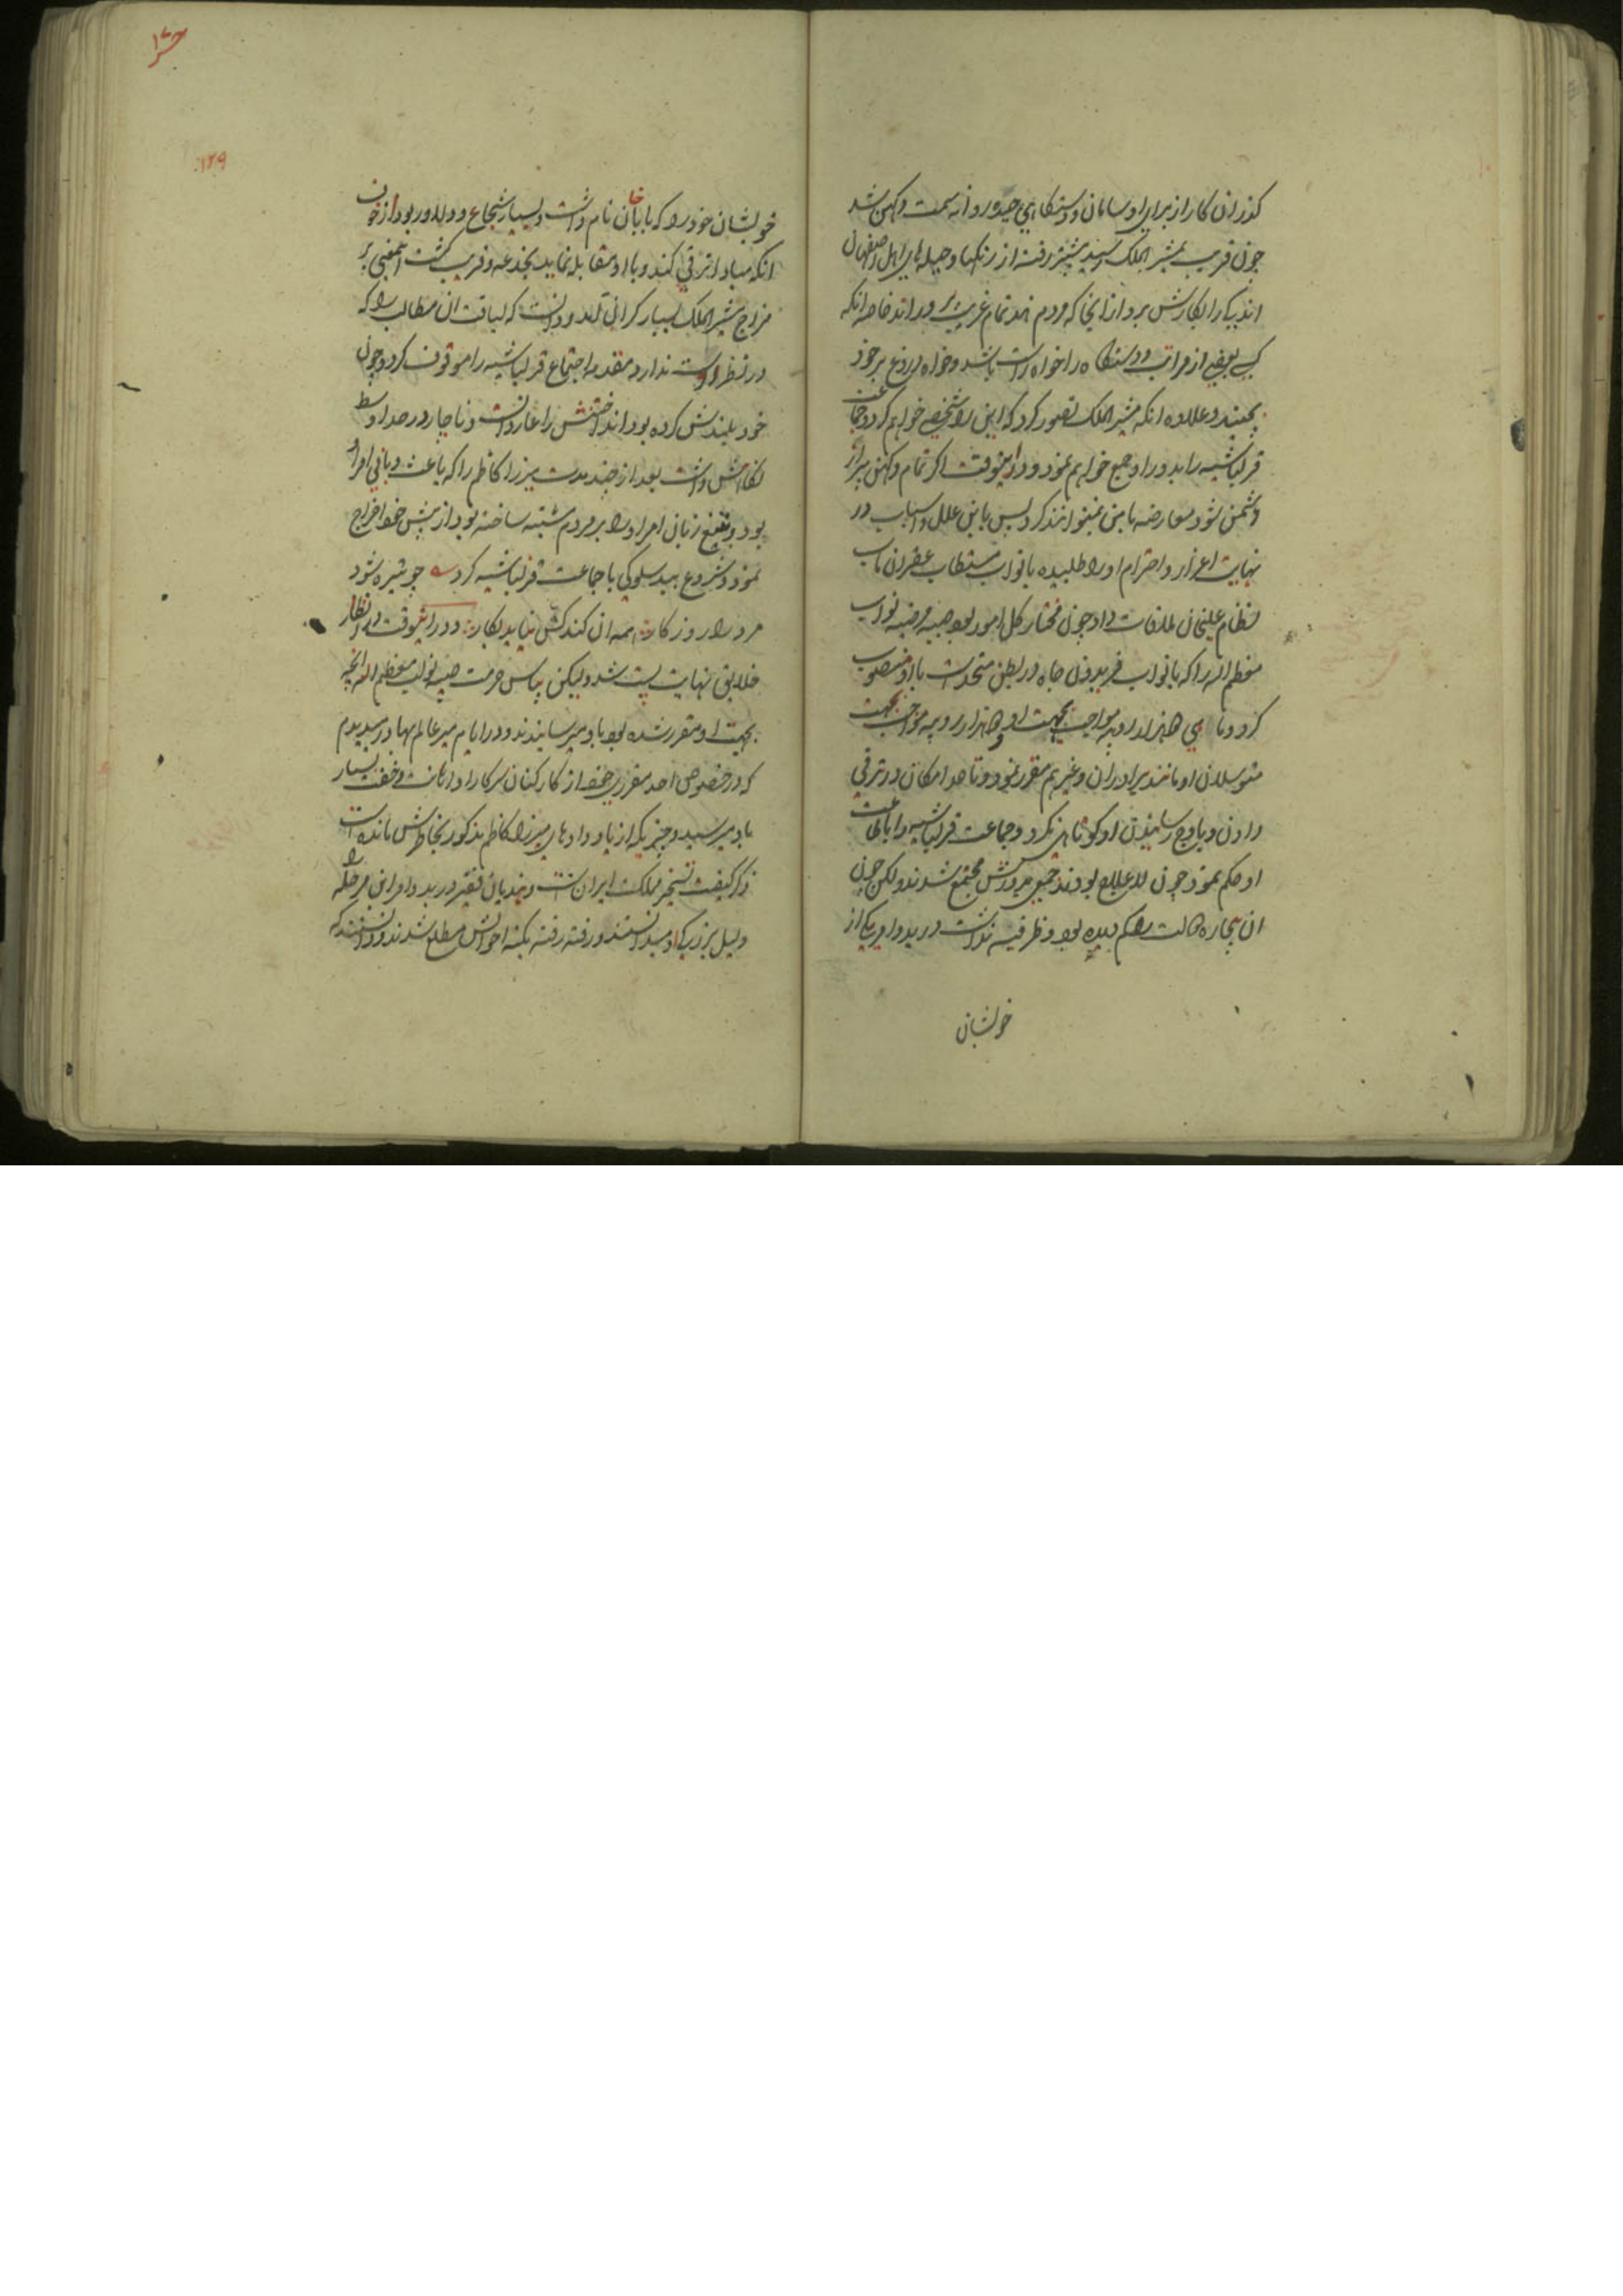 کذران کار از برای او سامان و دستکاهی چیده روانه سمت دکهن شد
چون قریب بمشیر الملک رسید پیشتر رفت از رنکها و حیله های اهل اصفهان
اند بکار را بکارش برد از انجا که مردم هند تمام غریب اند خاصه انکه
کسی بعضی از مراتب و دستکاه را خواه راست باشد و خواه دروغ بر خود
به بندد علاوه انکه مشیر الملک تصور کرد که این را شخصی خواهم کرد و جماعت
قزلباشیه را بدور او جمع خواهم نمود و در انوقت اکر تمام دکهن با من
دشمن شود معارضه با من نمیتوانند کرد پس باین علل و اسباب در
نهایت اعزاز و احترام او را طلبیده با نواب مستطاب غفران ماب
نظام علیخان ملاقات داد چون مختار کل امور بود صبیه مرضیه نواب
معظم الیه را که با نواب فریدون جاه در بطن متحد است باو منصوب
کرد و تا سی هزار روپیه مواجب بجهت او و هزار روپیه مواجب بجهت
متوسلان او مانند برادران و غیرهم مقرر نمود و تا حد امکان در ترقی
دادن و باوج رسانیدن او کوتاهی نکرد و جماعت قزلباشیه را باطاعت
او حکم نمود چون لاعلاج بودند جمعی بدورش مجتمع شدند ولکن چون
ان بیچاره حالت را کم دیده بود و ظرفیه نداشت در بدو امر یکی از
خویشان
۱۲۹
خویشان خود را که باباخان نام داشت و بسیار شجاع و دلاور بود از خوف
انکه مبادا ترقی کند و با او مقابله نماید بخدعه و فریب کشت اینمعنی بر
مزاج مشیر الملک بسیار کران آمد و دانست که لیاقت ان مطالب را که
در نظر داشت ندارد مقدمه اجتماع قزلباشیه را موقوف کرد و چون
خود بلندش کرده بود انداختنش را عار دانست و ناچار در حد اوسط
نکاهش داشت بعد از چند مدت میرزا کاظم را که باعث و بانی امر او
بود و بتیغ زبانی امر او را بر مردم مشتبه ساخته بود از پیش خود اخراج
نمود و شروع ببد سلوکی با جماعت قزلباشیه کرد چو تیره شود
مرد را روزکار همه ان کند کش نیاید بکار و در انوقت در انظار
خلایق نهایت پست شد ولیکن پاس حرمت صبیه نواب معظم الیه انچه
بجهت او مقرر شده بود باو میرسانیدند و در ایام میر عالم بهادر میدیدم
که در خصوص اخذ مقرری خود از کارکنان سرکار او اهانت و خفت بسیار
باو میرسید و چیزیکه از یاد دادهای میرزا کاظم مذکور بخاطرش مانده است
ذکر کیفیت تسخیر مملکت ایران است و هندیان فقیر در بدو امر این مرحله را
دلیل بزرکی او میدانستند و رفته رفته بکنه احوالش مطلع شدند و دانستند که